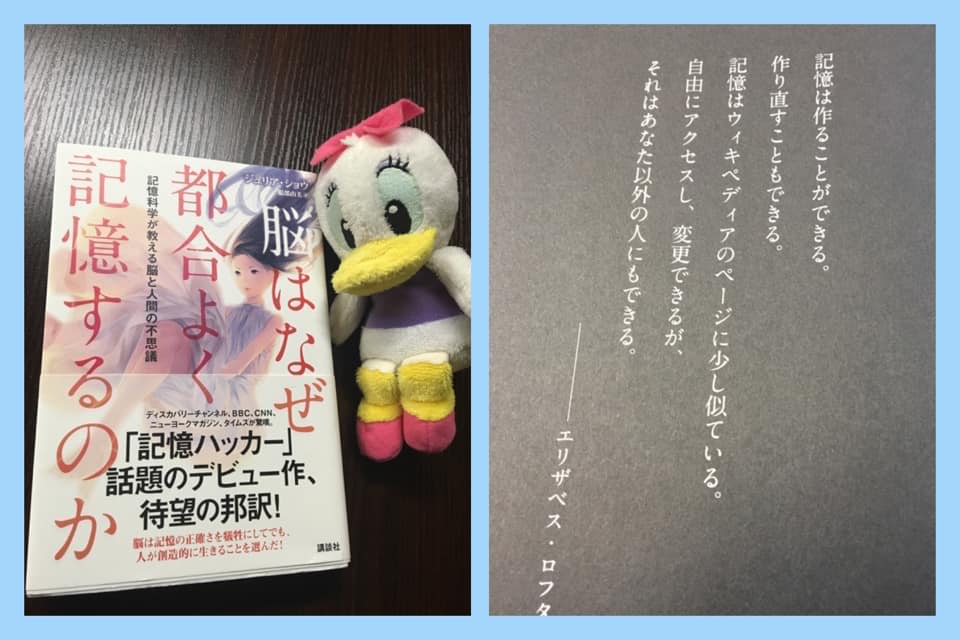 ジュリア・ショウ
服部由美 訳
脳はなぜ
都合よく
記憶するのか
記憶科学が教える脳と人間の不思議
ディスカバリーチャンネル、BBC、CNN、
ニューヨークマガジン、タイムズが驚嘆。
「記憶ハッカー」
話題のデビュー作、
待望の邦訳!
脳は記憶の正確さを犠牲にしてでも、
人が創造的に生きることを選んだ!
講談社
記憶は作ることができる。
作り直すこともできる。
記憶はウィキペディアのページに少し似ている。
自由にアクセスし、変更できるが、
それはあなた以外の人にもできる。
――エリザベス・ロフタ